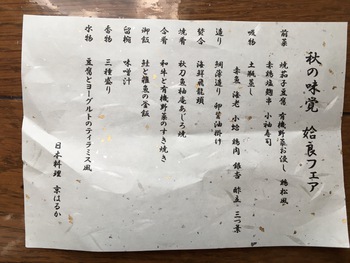 秋の味覚 姶良フェア
前菜 焼茄子豆腐 有機野菜お浸し 鶏松風
赤鶏塩麹串 小袖寿司
吸物 土瓶蒸し
赤魚 海老 小蛤 鶏肉 銀杏 酢立 三つ葉
造り 鯛薄造り 卵醤油掛け
焚合 海鮮飛龍頭
焼肴 秋刀魚柚庵あじろ焼
合肴 和牛と有機野菜のすき焼き
御飯 鮭と雑魚の釜飯
留椀 味噌汁
香物 三種盛り
水物 豆腐とヨーグルトのティラミス風
日本料理 京はるか